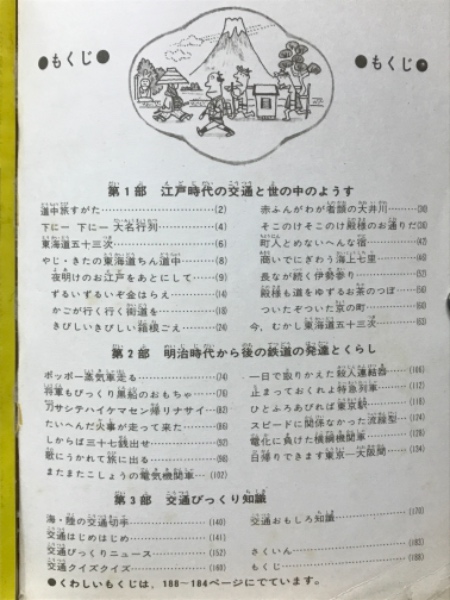 ●もくじ●
●もくじ●
第1部 江戸時代の交通と世の中のようす
道中旅すがた (2)
下にー 下にー 大名行列 (4)
東海道五十三次 (6)
やじ・きたの東海道ちん道中 (8)
夜明けのお江戸をあとにして (9)
ずるいずるいぞ金はらえ (14)
かごが行く行く街道を (18)
きびしいきびしい箱根ごえ (24)
赤ふんわがが者顔の大井川
そこのけそこのけ殿様のお通りだ
町人とめないへんな宿 (42)
商いでにぎわう海上七里 (46)
長なが続く伊勢参り
殿様も道をゆずるお茶のつぼ
ついたぞついた京の町
今、むかし東海道五十三次
第2部 明治時代から後の鉄道の発達とくらし
ポッポー蒸気車走る (74)
将軍もびっくり黒船のおもちゃ (76)
カサシテハイケマセン帰リナサイ (82)
たいへんだ火事が走って来た (86)
しからば三十七銭出せ (92)
歌にうかれて旅に出る (98)
またまたこしょうの電気機関車 (102)
一日で取りかえた殺人連結器 (108)
止まっておくれよ特急列車 (112)
ひとふろあびれば東京駅 (116)
スピードに関係なかった流線型 (124)
電化に負けた横綱機関車 (128)
日帰りできます東京ー大阪間 (134)
第3部 交通びっくり知識
海・陸の交通切手 (140)
交通はじめはじめ (141)
交通びっくりニュース (152)
交通クイズクイズ (160)
交通おもしろ知識 (170)
さくいん
もくじ
●くわしいもくじは、188〜184ページにでています。